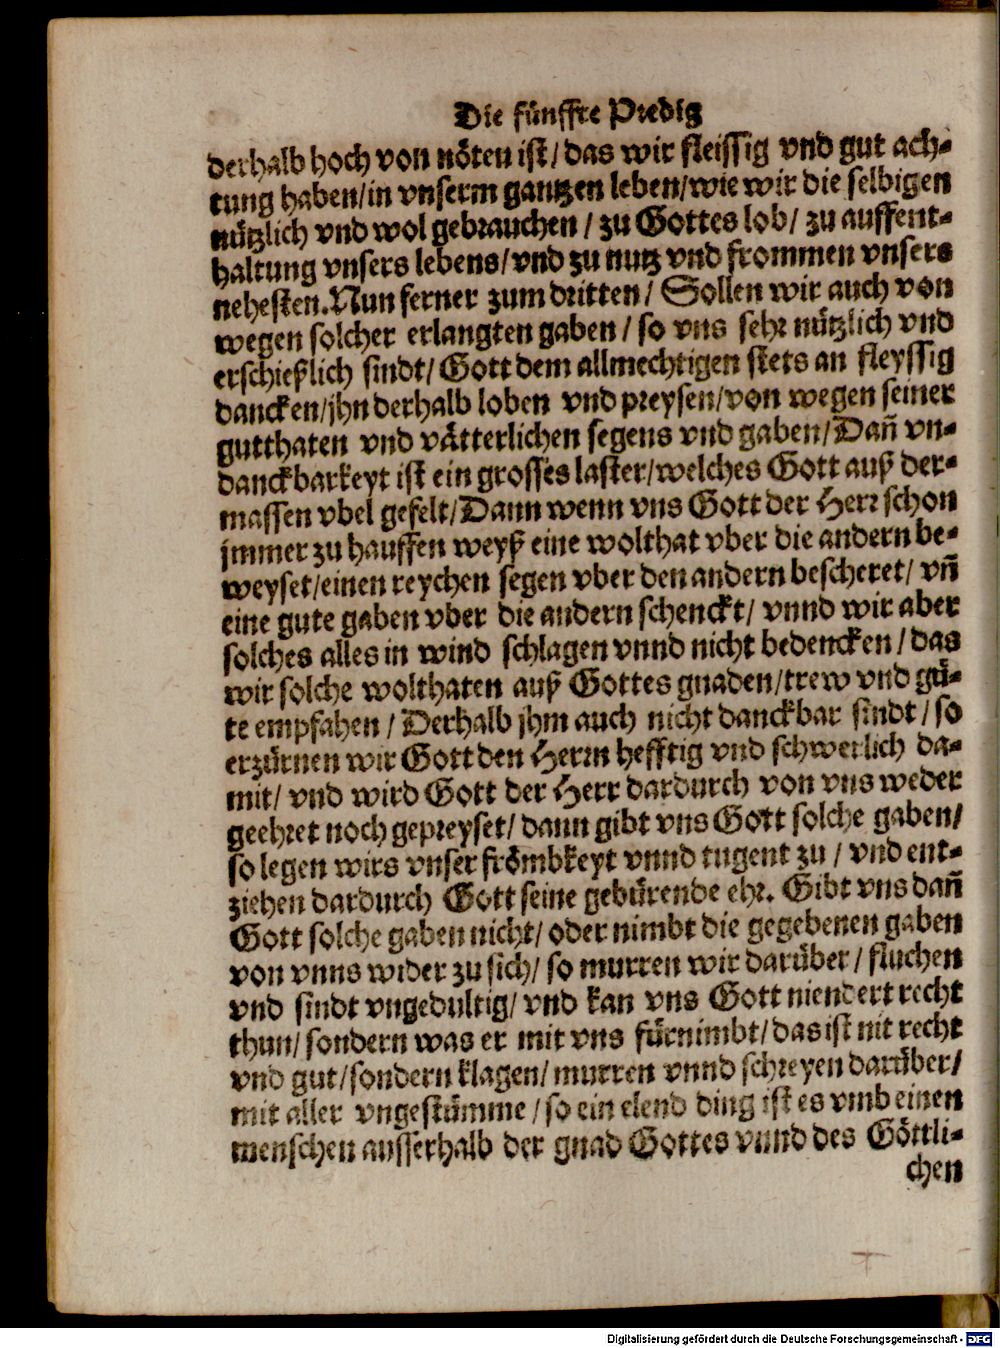 Die fünffte Predig
derhalb hoch von nöten ist/das wir fleissig vnd gut ach-
tung haben/in vnserm gantzen leben/wie wir die selbigen
nützlich vnd wol gebrauchen / zu Gottes lob/ zu auffent-
haltung vnsers lebens/vnd zu nutz vnd frommen vnsers
nehesten.Nun ferner zum dritten/ Sollen wir auch von
wegen solcher erlangten gaben / so vns sehr nützlich vnd
erschießlich sindt/ Gott dem allmechtigen stets an fleyssig
dancken/jhn derhalb loben vnd preysen/von wegen seiner
gutthaten vnd vätterlichen segens vnd gaben/Dañ vn-
danckbarkeyt ist ein grosses laster/welches Gott auß der-
massen vbel gefelt/Dann wenn vns Gott der Herr schon
jmmer zu hauffen weyß eine wolthat vber die andern be-
weyset/einen reychen segen vber den andern bescheret/ vñ
eine gute gaben vber die andern schenckt/ vnnd wir aber
solches alles in wind schlagen vnnd nicht bedencken/das
wir solche wolthaten auß Gottes gnaden/trew vnd gü-
te empfahen / Derhalb jhm auch nicht danckbar sindt/so
erzürnen wir Gott den Herrn hefftig vnd schwerlich da-
mit/ vnd wird Gott der Herr dardurch von vns weder
geehret noch gepreyset/ dann gibt vns Gott solche gaben/
so legen wirs vnser frömbkeyt vnnd tugent zu / vnd ent-
ziehen dardurch Gott seine gebürende ehr. Gibt vns dañ
Gott solche gaben nicht/ oder nimbt die gegebenen gaben
von vnns wider zu sich/ so murren wir darüber/ fluchen
vnd sindt vngedultig/ vnd kan vns Gott niendert recht
thun/ sondern was er mit vns fürnimbt/das ist nit recht
vnd gut/sondern klagen/ murren vnnd schreyen darüber/
mit aller vngestümme /so ein elend ding ist es vmb einen
menschen ausserhalb der gnad Gottes vnnd des Göttli-
chen
Digitalisierung gefördert durch die Deutsche Forschungsgemeinschaft - DFG